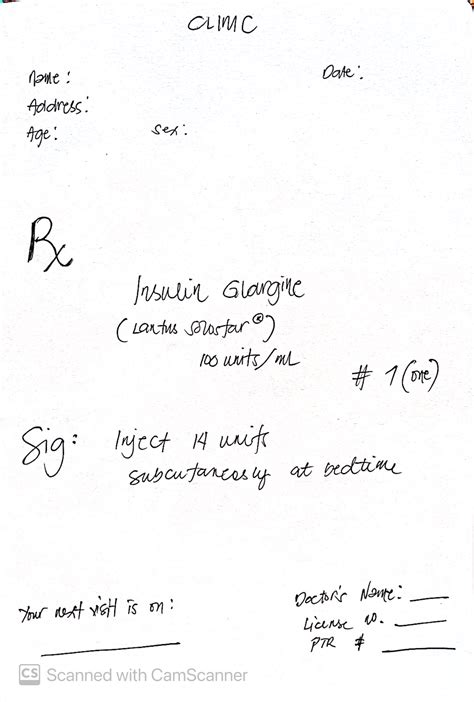 CLINIC
Name: Date:
Address:
Age: Sex:
Rx
Insulin Glargine
(Lantus Solostar®)
100 units/mL
# 1 (one)
Sig: Inject 14 units
subcutaneosly at bedtime
Your next visit is on:
Doctor's Name:
License no.
PTR #
CS Scanned with CamScanner